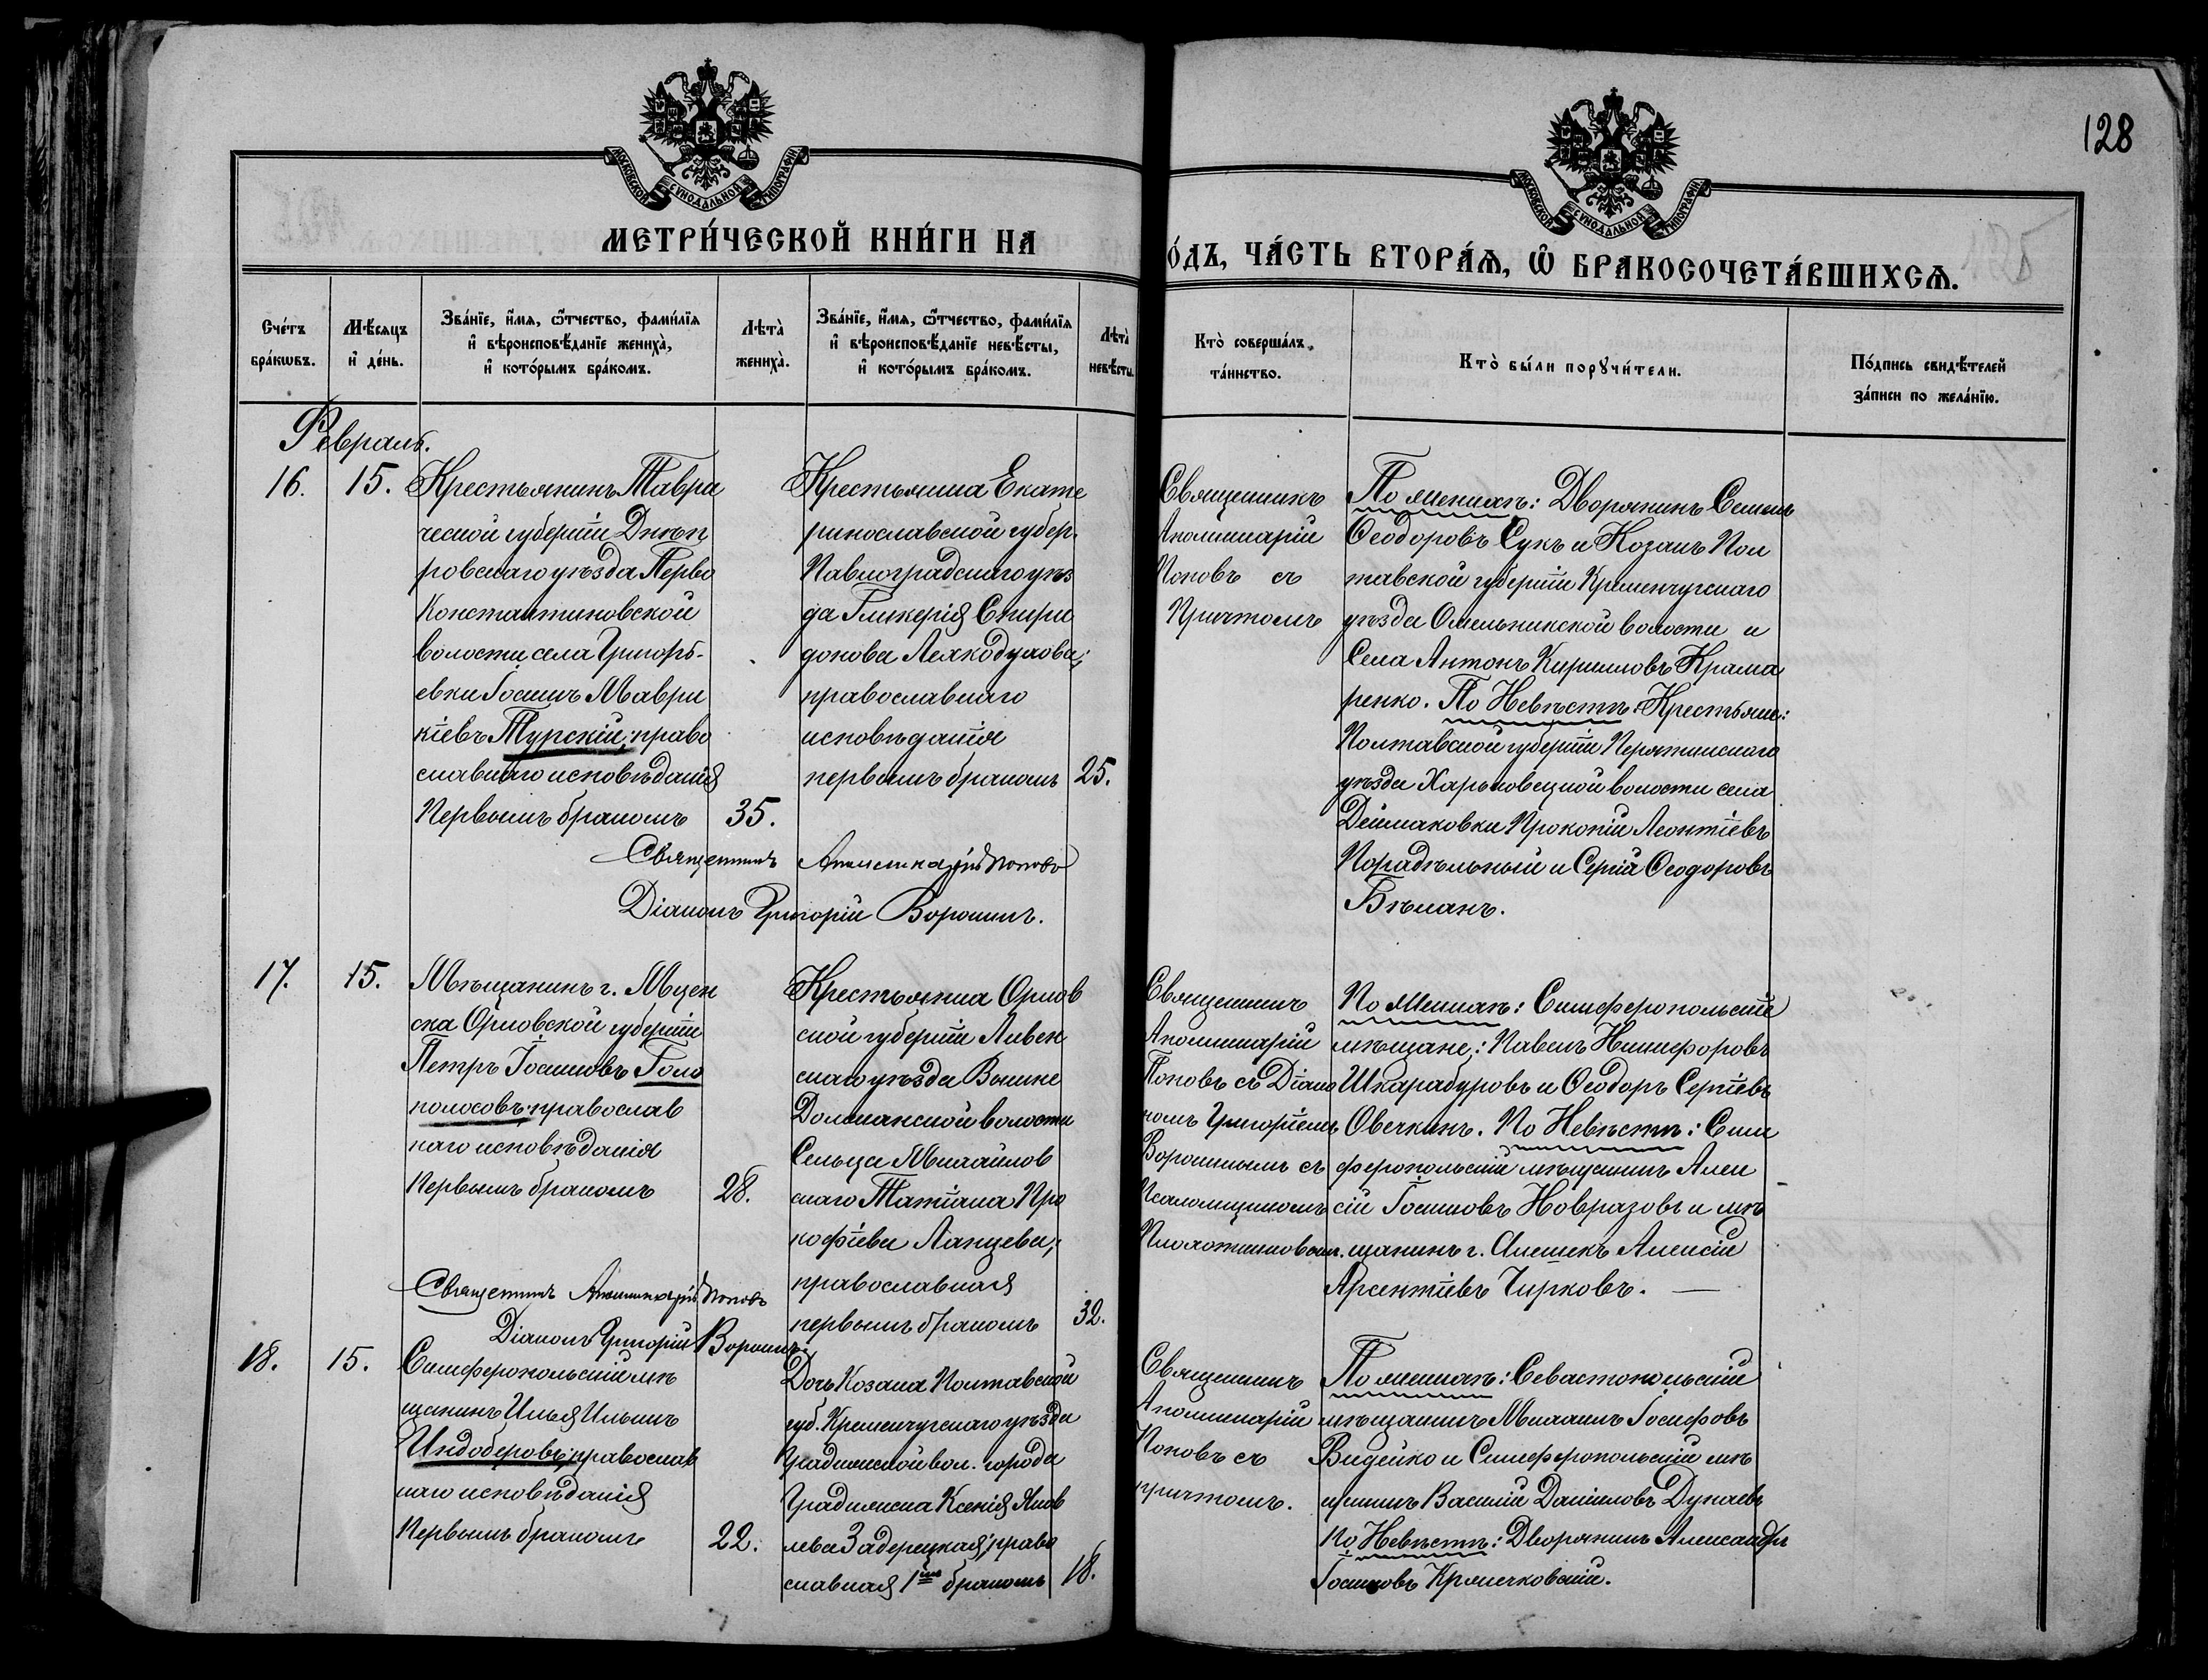 128
МОСКОВСКОЙ СѴНОДАЛЬНОЙ ТИПОГРАФІИ
МОСКОВСКОЙ СѴНОДАЛЬНОЙ ТИПОГРАФІИ
МЕТРИ́ЧЕСКОЙ КНИ́ГИ НА
О́ДЪ, ЧА́СТЬ ВТОРА́Ѧ, Ѽ БРАКОСОЧЕТА́ВШИХСѦ.
Сче́тъ
бра́кѡвъ.
Мѣ́сяцъ
и҆ де́нь.
Зва́нїе, и҆́мѧ, ѻ҆́тчество, фами́лїѧ
и҆ вѣроисповѣ́данїе жениха̀,
и҆ кото́рымъ бра́комъ.
Лѣта̀
жениха̀.
Зва́нїе, и҆́мѧ, ѻ҆́тчество, фами́лїѧ
и҆ вѣроисповѣ́данїе невѣ́сты,
и҆ кото́рымъ бра́комъ.
Лѣта̀
невѣ́сты.
Кто̀ соверша́лъ
та́инство.
Кто̀ бы́ли порꙋчи́тели.
По́дпись свидѣ́телей
за́писи по жела́нїю.
Февраль.
16.
15.
Крестьянинъ Таври
ческой губерніи Днѣп
ровскаго уѣзда Перво
Константиновской
волости села Григорь-
евки Іоаннъ Маври
кіевъ Турскій; право
славнаго исповѣданія
Первымъ бракомъ
35.
Крестьянка Екате
ринославской губер.
Павлоградскаго уѣз
да Гликерія Спири
донова
православнаго
исповѣданія
первымъ бракомъ
25.
Священникъ Аполлинарій Поповъ
Діаконъ Григорій Воронинъ.
Священникъ
Аполлинарій
Поповъ съ
Причтомъ
По женихѣ: Дворянинъ Семенъ
Ѳеодоровъ Сукъ и Козакъ Пол
тавской губерніи Кременчугскаго
уѣзда Омельникской волости и
Села Антонъ Кирилловъ Крама
ренко. По Невѣстѣ: Крестьяне:
Полтавской губерніи Пирятинскаго
уѣзда Харьковецкой волости села
Деймаковки Прокопій Леонтіевъ
и Сергій Ѳеодоровъ
Бѣланъ.
17.
15.
Мѣщанинъ г. Мцен
ска Орловской губерніи
Петръ Іоанновъ Голо
полосовъ; православ
наго исповѣданія
Первымъ бракомъ
28.
Крестьянка Орлов
ской губерніи Ливен
скаго уѣзда Вышне
Должанской волости
Сельца Михайлов
скаго Татіана Про
кофіева Ланцева;
православная
первымъ бракомъ
32.
Священникъ Аполлинарій Поповъ
Діаконъ Григорій Воронинъ.
Священникъ
Аполлинарій
Поповъ съ Діако
номъ Григоріемъ
Воронинымъ съ
Псаломщикомъ
По женихѣ: Симферопольскіе
мѣщане: Павелъ Никифоровъ
Шкарабуровъ и Ѳеодоръ Сергіевъ
Овечкинъ. По Невѣстѣ: Сим
феропольскій мѣщанинъ Алек
сій Іоанновъ Новразовъ и мѣ
щанинъ г. Алешекъ Алексій
Арсентіевъ Чирковъ.
18.
15.
Симферопольскій мѣ
щанинъ Илья Ильинъ
Индоберовъ; православ
наго исповѣданія
Первымъ бракомъ
22.
Дочь Козака Полтавской
губ. Кременчугскаго уѣзда
Градижской вол. города
Градижска Ксенія Яков
лева Задерецкая; право
славная 1мъ бракомъ
18.
Священникъ
Аполлинарій
Поповъ съ
причтомъ.
По женихѣ: Севастопольскій
мѣщанинъ Михаилъ Іосифовъ
Видейко и Симферопольскій мѣ
щанинъ Василій Даніиловъ Дунаевъ
По Невѣстѣ: Дворянинъ Александръ
Іоанновъ